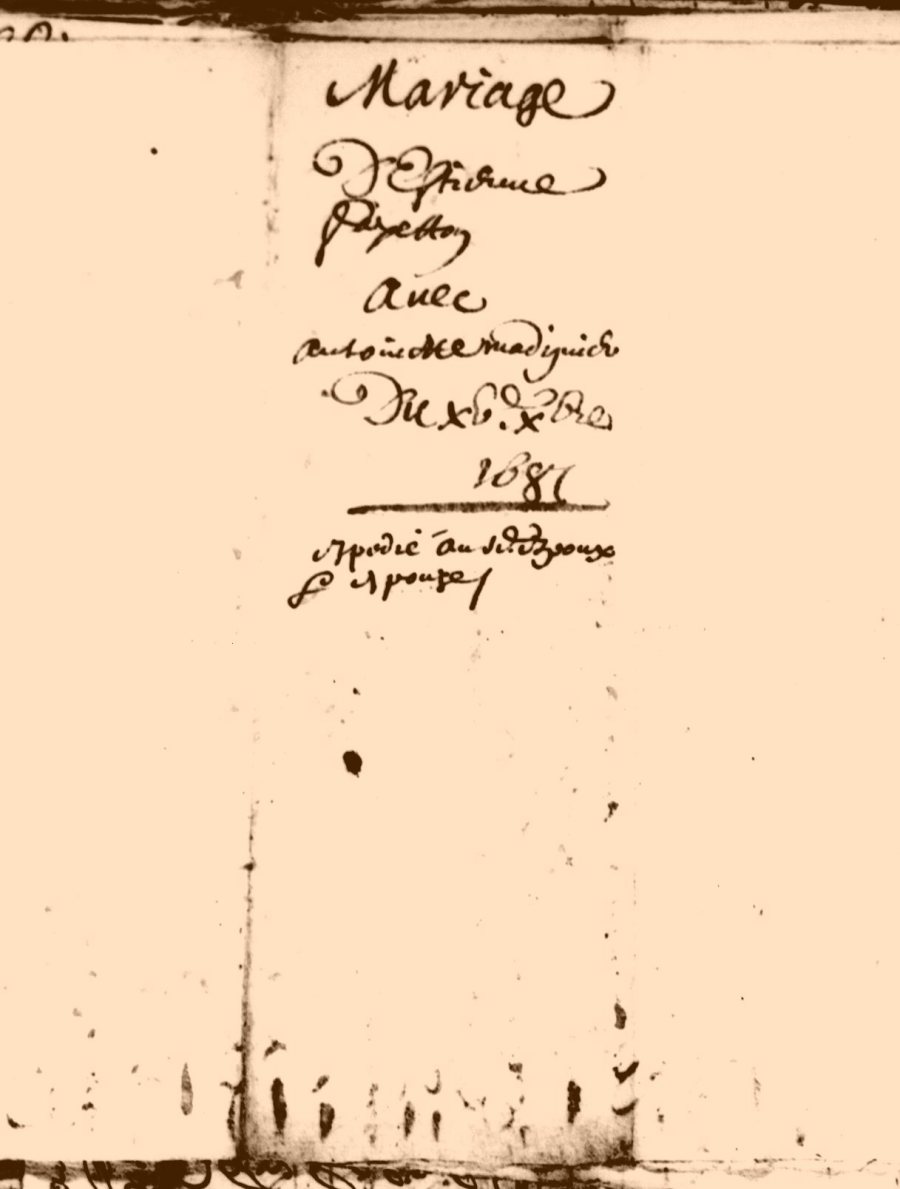 Mariage
D'Estienne
avec
antoinette madignier
Du xv.e xbre
1687
expedié au sd. Espoux
& espouse